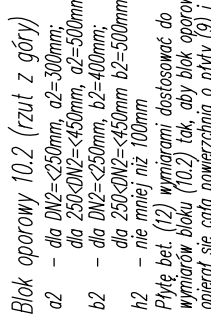 Blok oporowy 10.2 (rzut z góry)
a2 - dla DN2=<250mm, a2=300mm;
dla 250<DN2=<450mm, a2=500mm
b2 - dla DN2=<250mm, b2=400mm;
dla 250<DN2=<450mm b2=500mm
h2 - nie mniej niż 100mm
Płytę bet. (12) wymiarami dostosować do
wymiarów bloku (10.2) tak, aby blok oporowy
opierał się całą powierzchnią o płyty (9) i